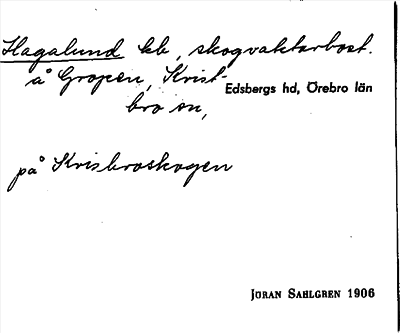 Hagalund bb, skogvaktarbost.
å Gropen, Krist-
bro sn,
Edsbergs hd, Örebro län
på Krisbroskogen
JÖRAN SAHLGREN 1906